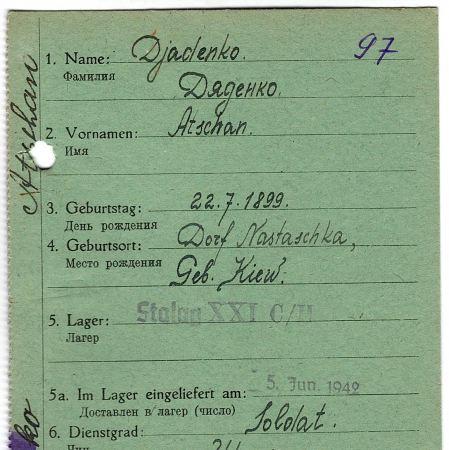 97
1. Name: Djadenko.
Фамилия
Дяденко.
2. Vornamen: Atschan.
Имя
3. Geburtstag: 22.7.1899.
День рождения
4. Geburtsort: Dorf Nastaschka,
Место рождения
Geb. Kiew.
5. Lager: Stalag XXI C/H
Лагер
5a. Im Lager eingeliefert am: 5. Jun. 1942
Доставлен в лагер (число)
6. Dienstgrad: Soldat.
Чин
Atschan
ko